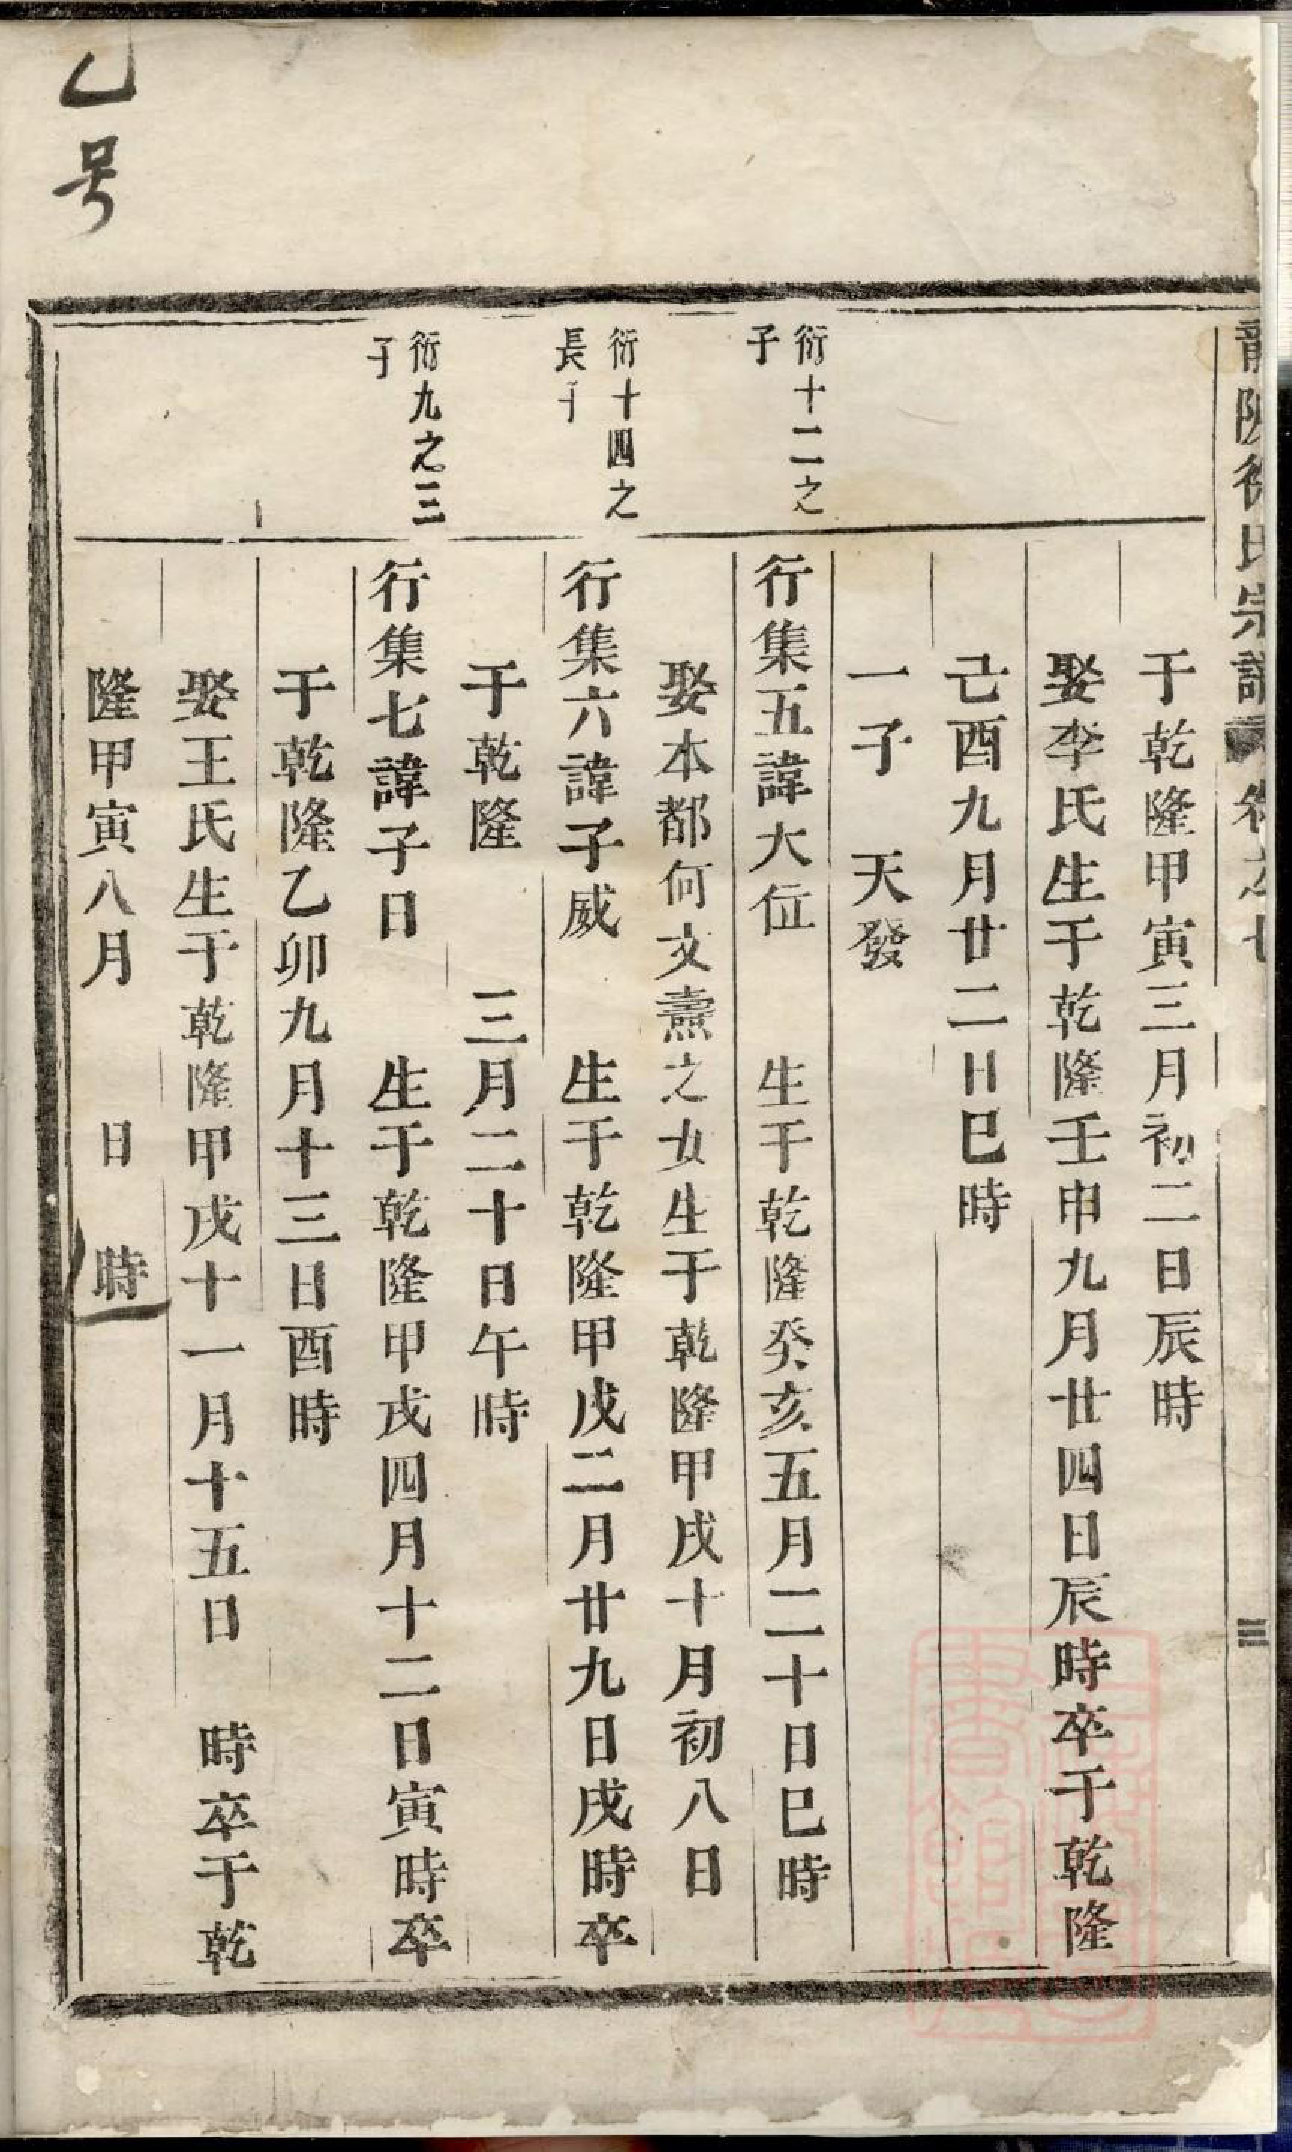 徐氏宗譜 卷之七
三
于乾隆甲寅三月初二日辰時
娶李氏生于乾隆壬申九月廿四日辰時卒于乾隆
己酉九月廿二日巳時
一子 天發
衍十二之
子
行集五諱大位 生于乾隆癸亥五月二十日巳時
娶本都何文燾之女生于乾隆甲戌十月初八日
衍十四之
長子
行集六諱子威 生于乾隆甲戌二月廿九日戌時卒
于乾隆 三月二十日午時
衍九之三
子
行集七諱子日 生于乾隆甲戌四月十二日寅時卒
于乾隆乙卯九月十三日酉時
娶王氏生于乾隆甲戌十一月十五日 時卒于乾
隆甲寅八月 日 時
乙号